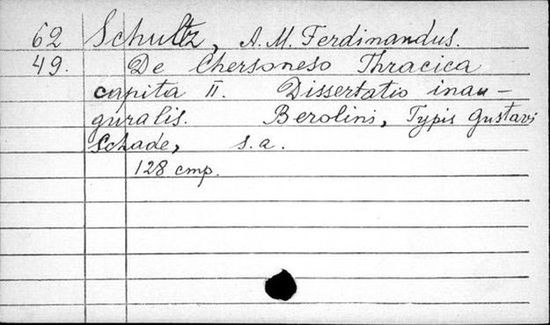 62 Schultz, A. M. Ferdinandus.
49. De Chersoneso Thracica
capita II. Dissertatio inau-
guralis. Berolini, Typis Gustavi
Schade, s. a.
128 cmp.